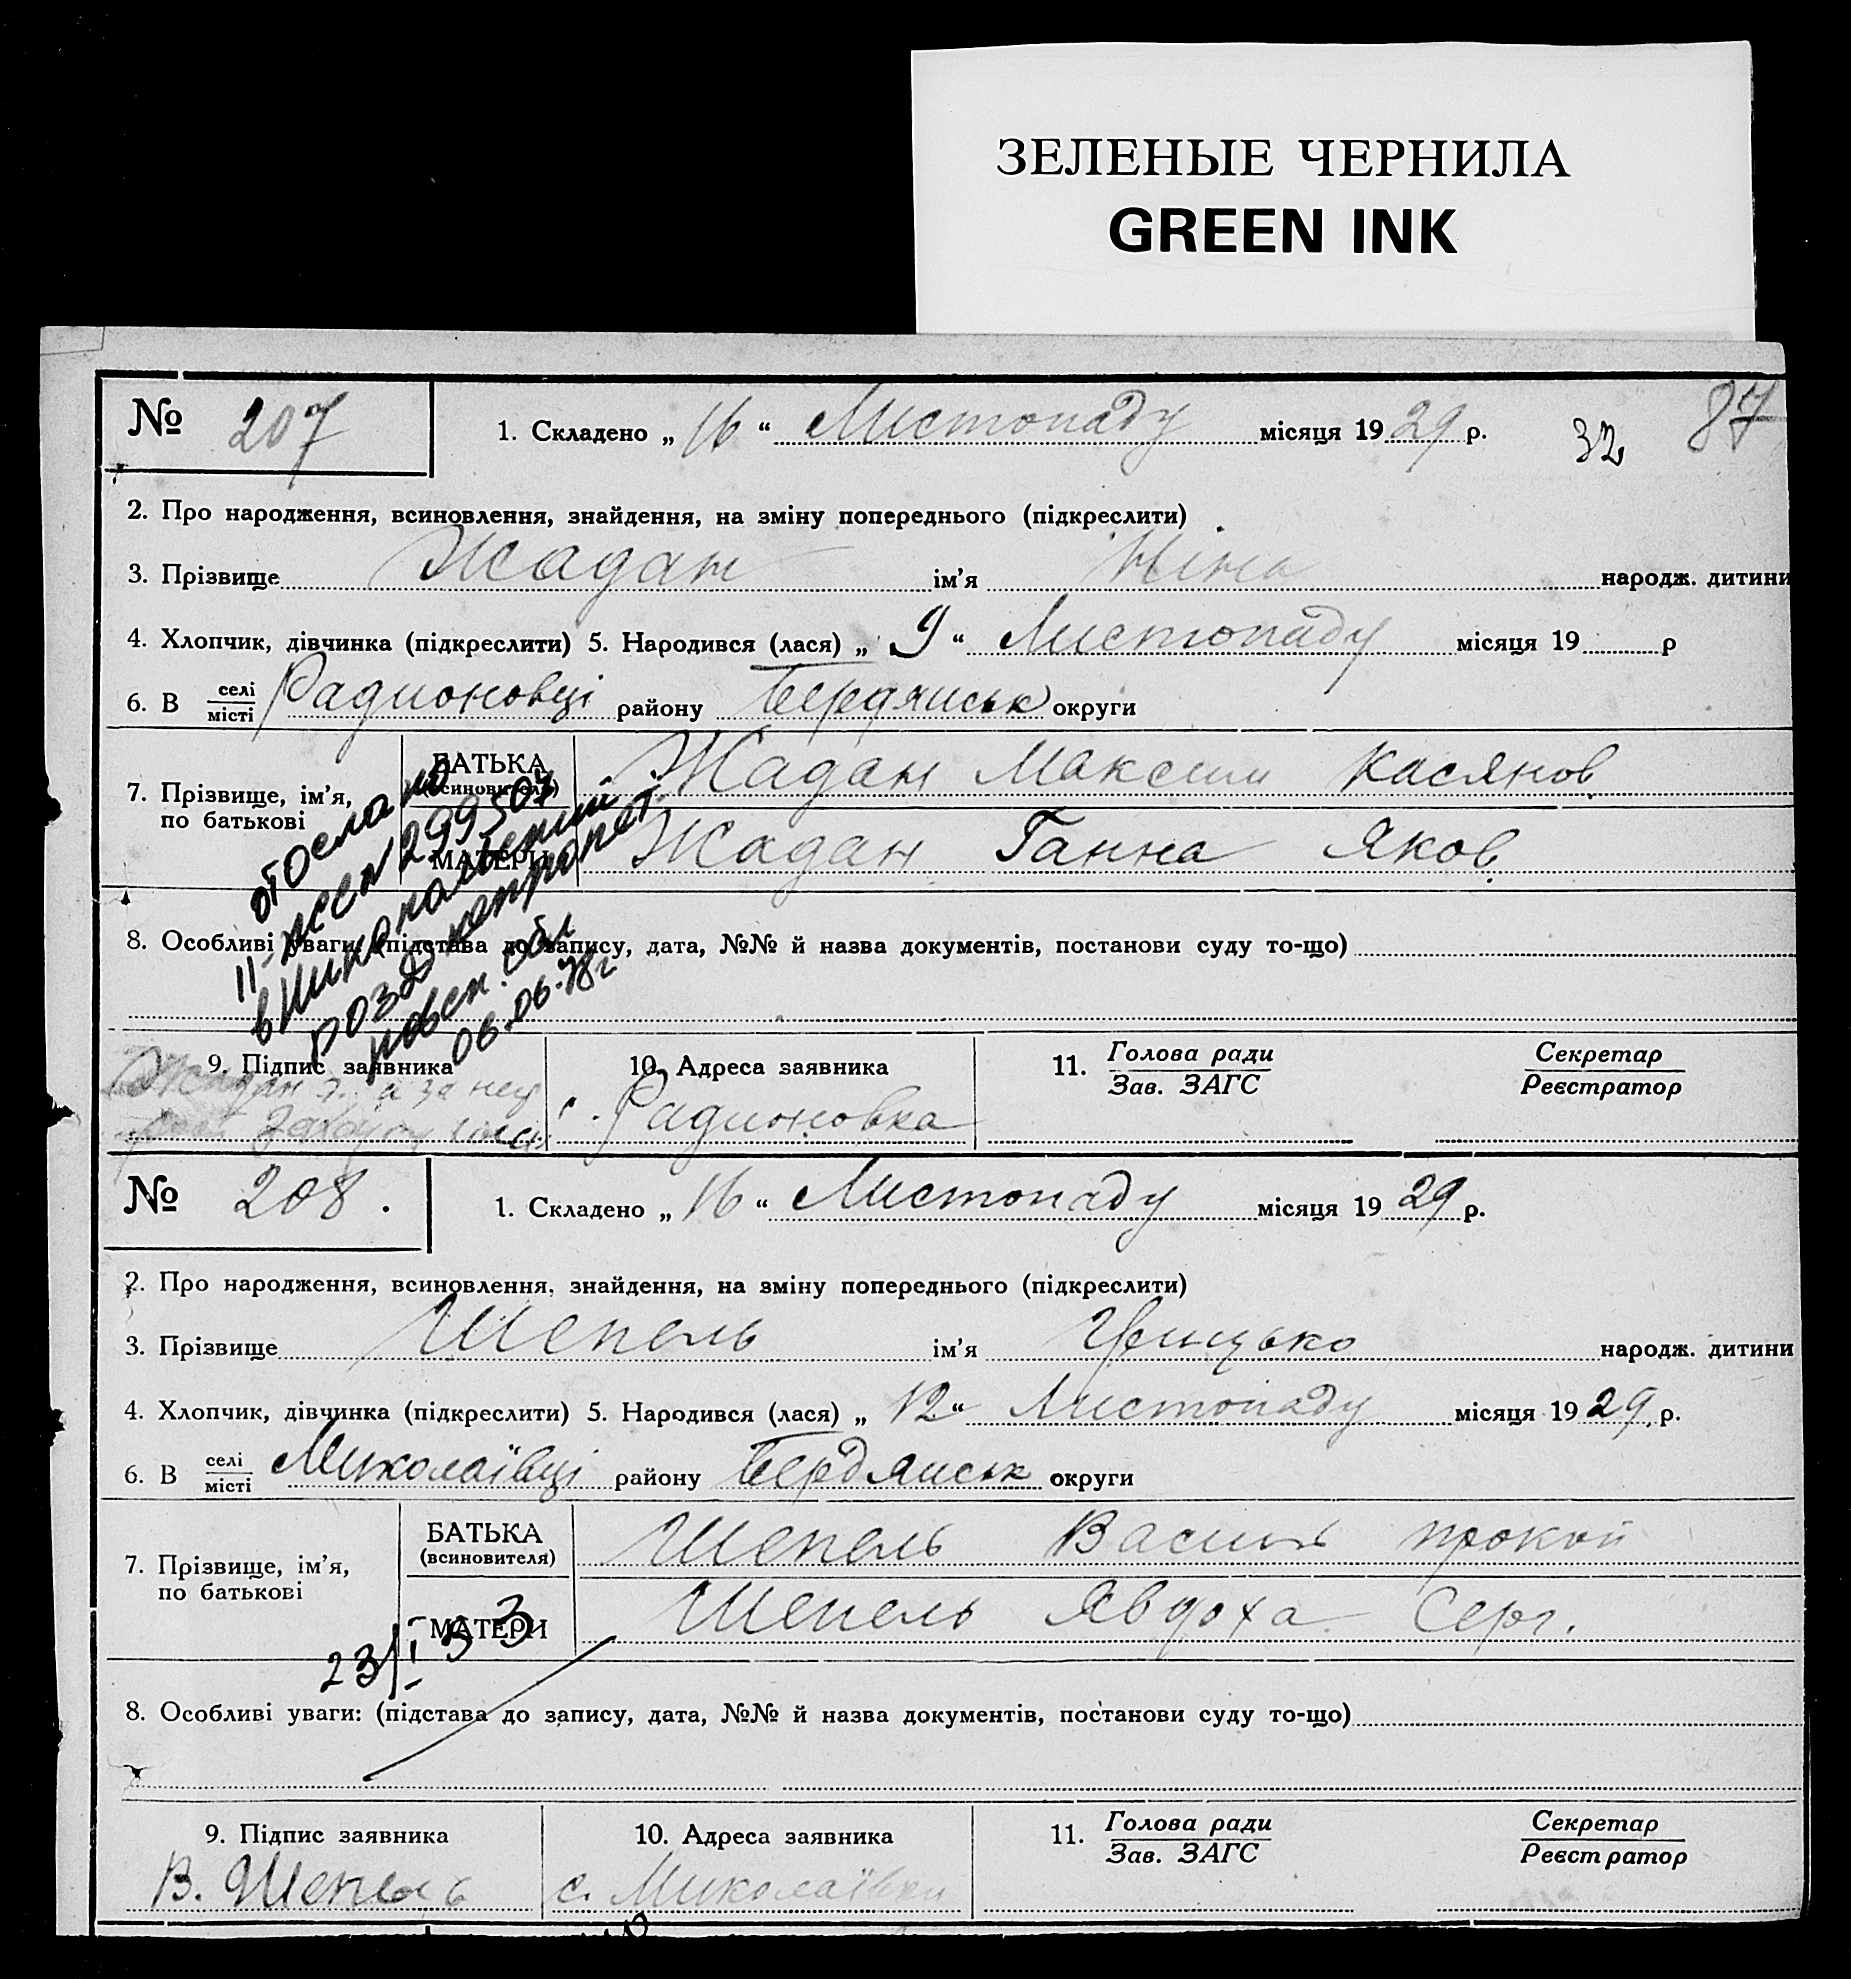 ЗЕЛЕНЫЕ ЧЕРНИЛА
GREEN INK
№ 207 1. Складено „ 16 “ Листопаду місяця 19 29 р. 32 87
2. Про народження, всиновлення, знайдення, на зміну попереднього (підкреслити)
3. Прізвище Жадан ім’я Ніна народж. дитини
4. Хлопчик, дівчинка (підкреслити) 5. Народився (лася) „ 9 “ Листопаду місяця 19 р
6. В селі/місті Радионовці району Бердянськ округи
7. Прізвище, ім’я, по батькові
БАТЬКА (всиновителя) Жадан Максим Касянов
МАТЕРИ Жадан Ганна Яков.
отослано
II-ЖС 299507
06.06.78г
8. Особливі уваги: (підстава до запису, дата, №№ й назва документів, постанови суду то-що)
9. Підпис заявника 10. Адреса заявника 11. Голова ради Секретар
Зав. ЗАГС Реєстратор
Жадан а за неї
с. Радионовка
№ 208. 1. Складено „ 16 “ Листопаду місяця 19 29 р.
2. Про народження, всиновлення, знайдення, на зміну попереднього (підкреслити)
3. Прізвище Шепель ім’я Грицько народж. дитини
4. Хлопчик, дівчинка (підкреслити) 5. Народився (лася) „ 12 “ Листопаду місяця 19 29 р.
6. В селі/місті Миколаївці району Бердянськ округи
7. Прізвище, ім’я, по батькові
БАТЬКА (всиновителя) Шепель Василь Прокоп
МАТЕРИ Шепель Явдоха Серг.
23/I 53
8. Особливі уваги: (підстава до запису, дата, №№ й назва документів, постанови суду то-що)
9. Підпис заявника 10. Адреса заявника 11. Голова ради Секретар
Зав. ЗАГС Реєстратор
В. Шепель с. Миколаївки